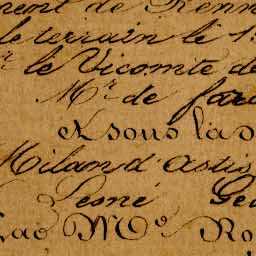 ment de Renn
le terrain le 1
r le Vicomte de
Mr de far
et sous la d
Milan d'Astis
Lesné Ge
Lao Mo Ro